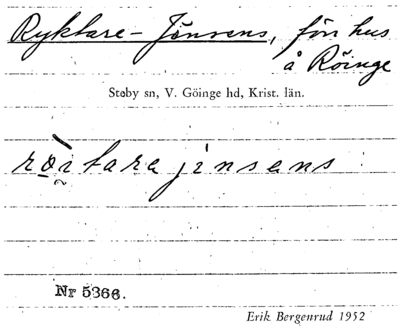 Ryktare-Jönsens, förr hus
å Röinge
Stoby sn, V. Göinge hd, Krist. län.
jinsens
Nr 5366.
Erik Bergenrud 1952